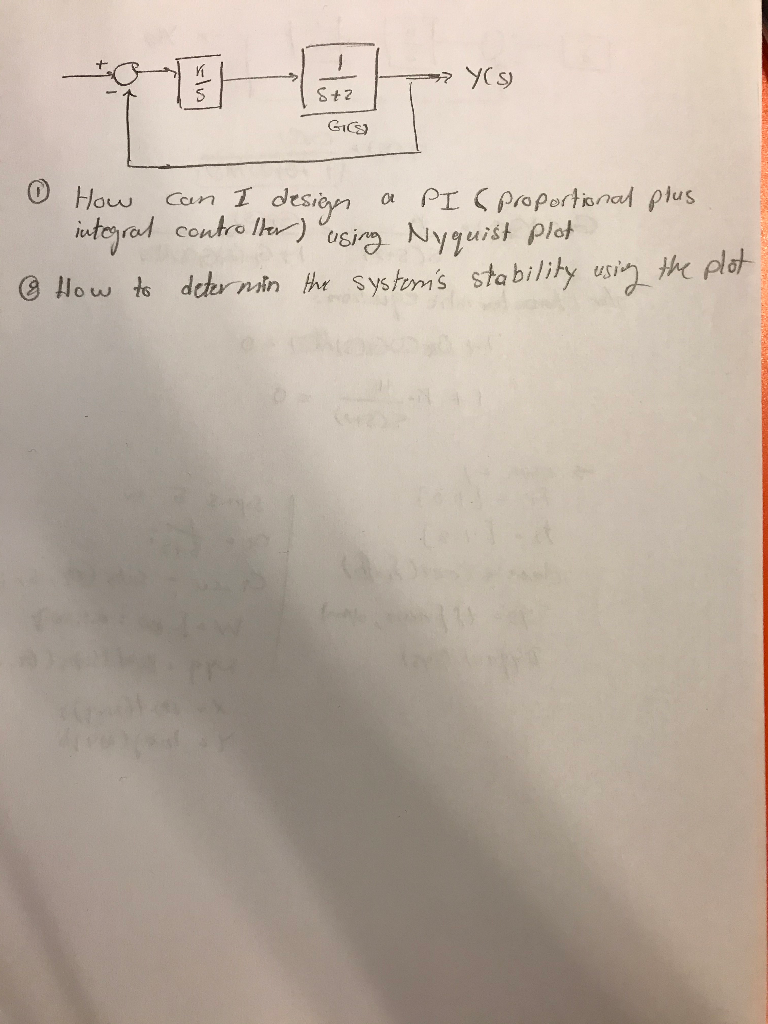 +
-
K
S
1
S+2
Y(s)
G(s)
① How can I design a PI (proportional plus
integral controller) using Nyquist plot
② How to determin the system's stability using the plot